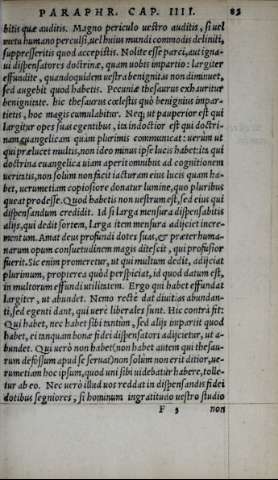 PARAPHR. CAP. IIII. 83
bitis quæ auditis. Magno periculo uestro auditis, si uel
metu humano perculsi, uel huius mundi commodis deliniti,
suppresseritis quod accepistis. Nolite esse parci, aut igna-
ui dispensatores doctrinæ, quam uobis impartio: largiter
effundite, quandoquidem uestra benignitas non diminuet,
sed augebit quod habetis. Pecuniæ thesaurus exhauritur
benignitate. hic thesaurus cœlestis quò benignius impar-
tietis, hoc magis cumulabitur. Neq; ut pauperior est qui
largitur opes suas egentibus, ita indoctior est qui doctri-
nam euangelicam quàm plurimis communicat: uerùm ut
qui prælucet multis, non ideo minus ipse lucis habet: ita qui
doctrina euangelica uiam aperit omnibus ad cognitionem
ueritatis, non solùm non facit iacturam eius lucis quam ha-
bet, uerumetiam copiosiore donatur lumine, quo pluribus
queat prodesse. Quod habetis non uestrum est, sed eius qui
dispensandum credidit. Id si larga mensura dispensabitis
alijs, qui dedit sortem, larga item mensura adijciet incre-
mentum. Amat deus profundi dotes suas, & præter huma-
narum opum consuetudinem magis ditescit, qui profusior
fuerit. Sic enim promeretur, ut qui multum dedit, adijciat
plurimum, propterea quòd perspiciat, id quod datum est,
in multorum effundi utilitatem. Ergo qui habet effundat
largiter, ut abundet. Nemo rectè dat diuitias abundan-
ti, sed egenti dant, qui uerè liberales sunt. Hic contrà fit:
Qui habet, nec habet sibi tantùm, sed alijs impartit quod
habet, ei tanquam bonæ fidei dispensatori adijcietur, ut a-
bundet. Qui uerò non habet (non habet autem qui thesau-
rum defossum apud se seruat) non solùm non erit ditior, ue-
rumetiam hoc ipsum, quod uni sibi uidebatur habere, tolle-
tur ab eo. Nec uerò illud uos reddat in dispensandis fidei
dotibus segniores, si hominum ingratitudo uestro studio
F 3 non